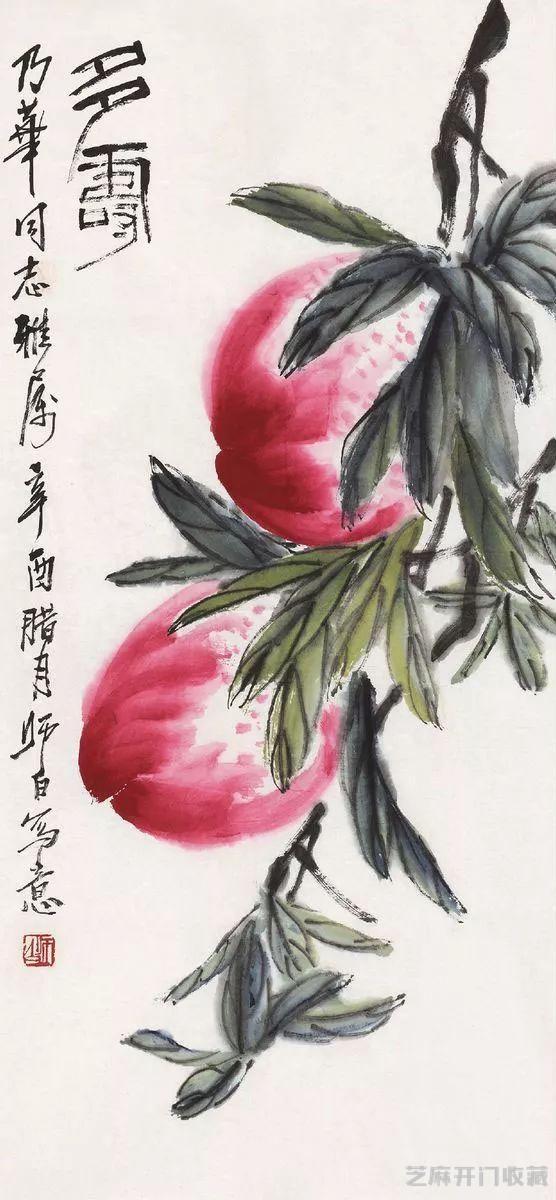 多寿
乃華同志雅屬辛酉腊月师白写意
芝麻开门收藏